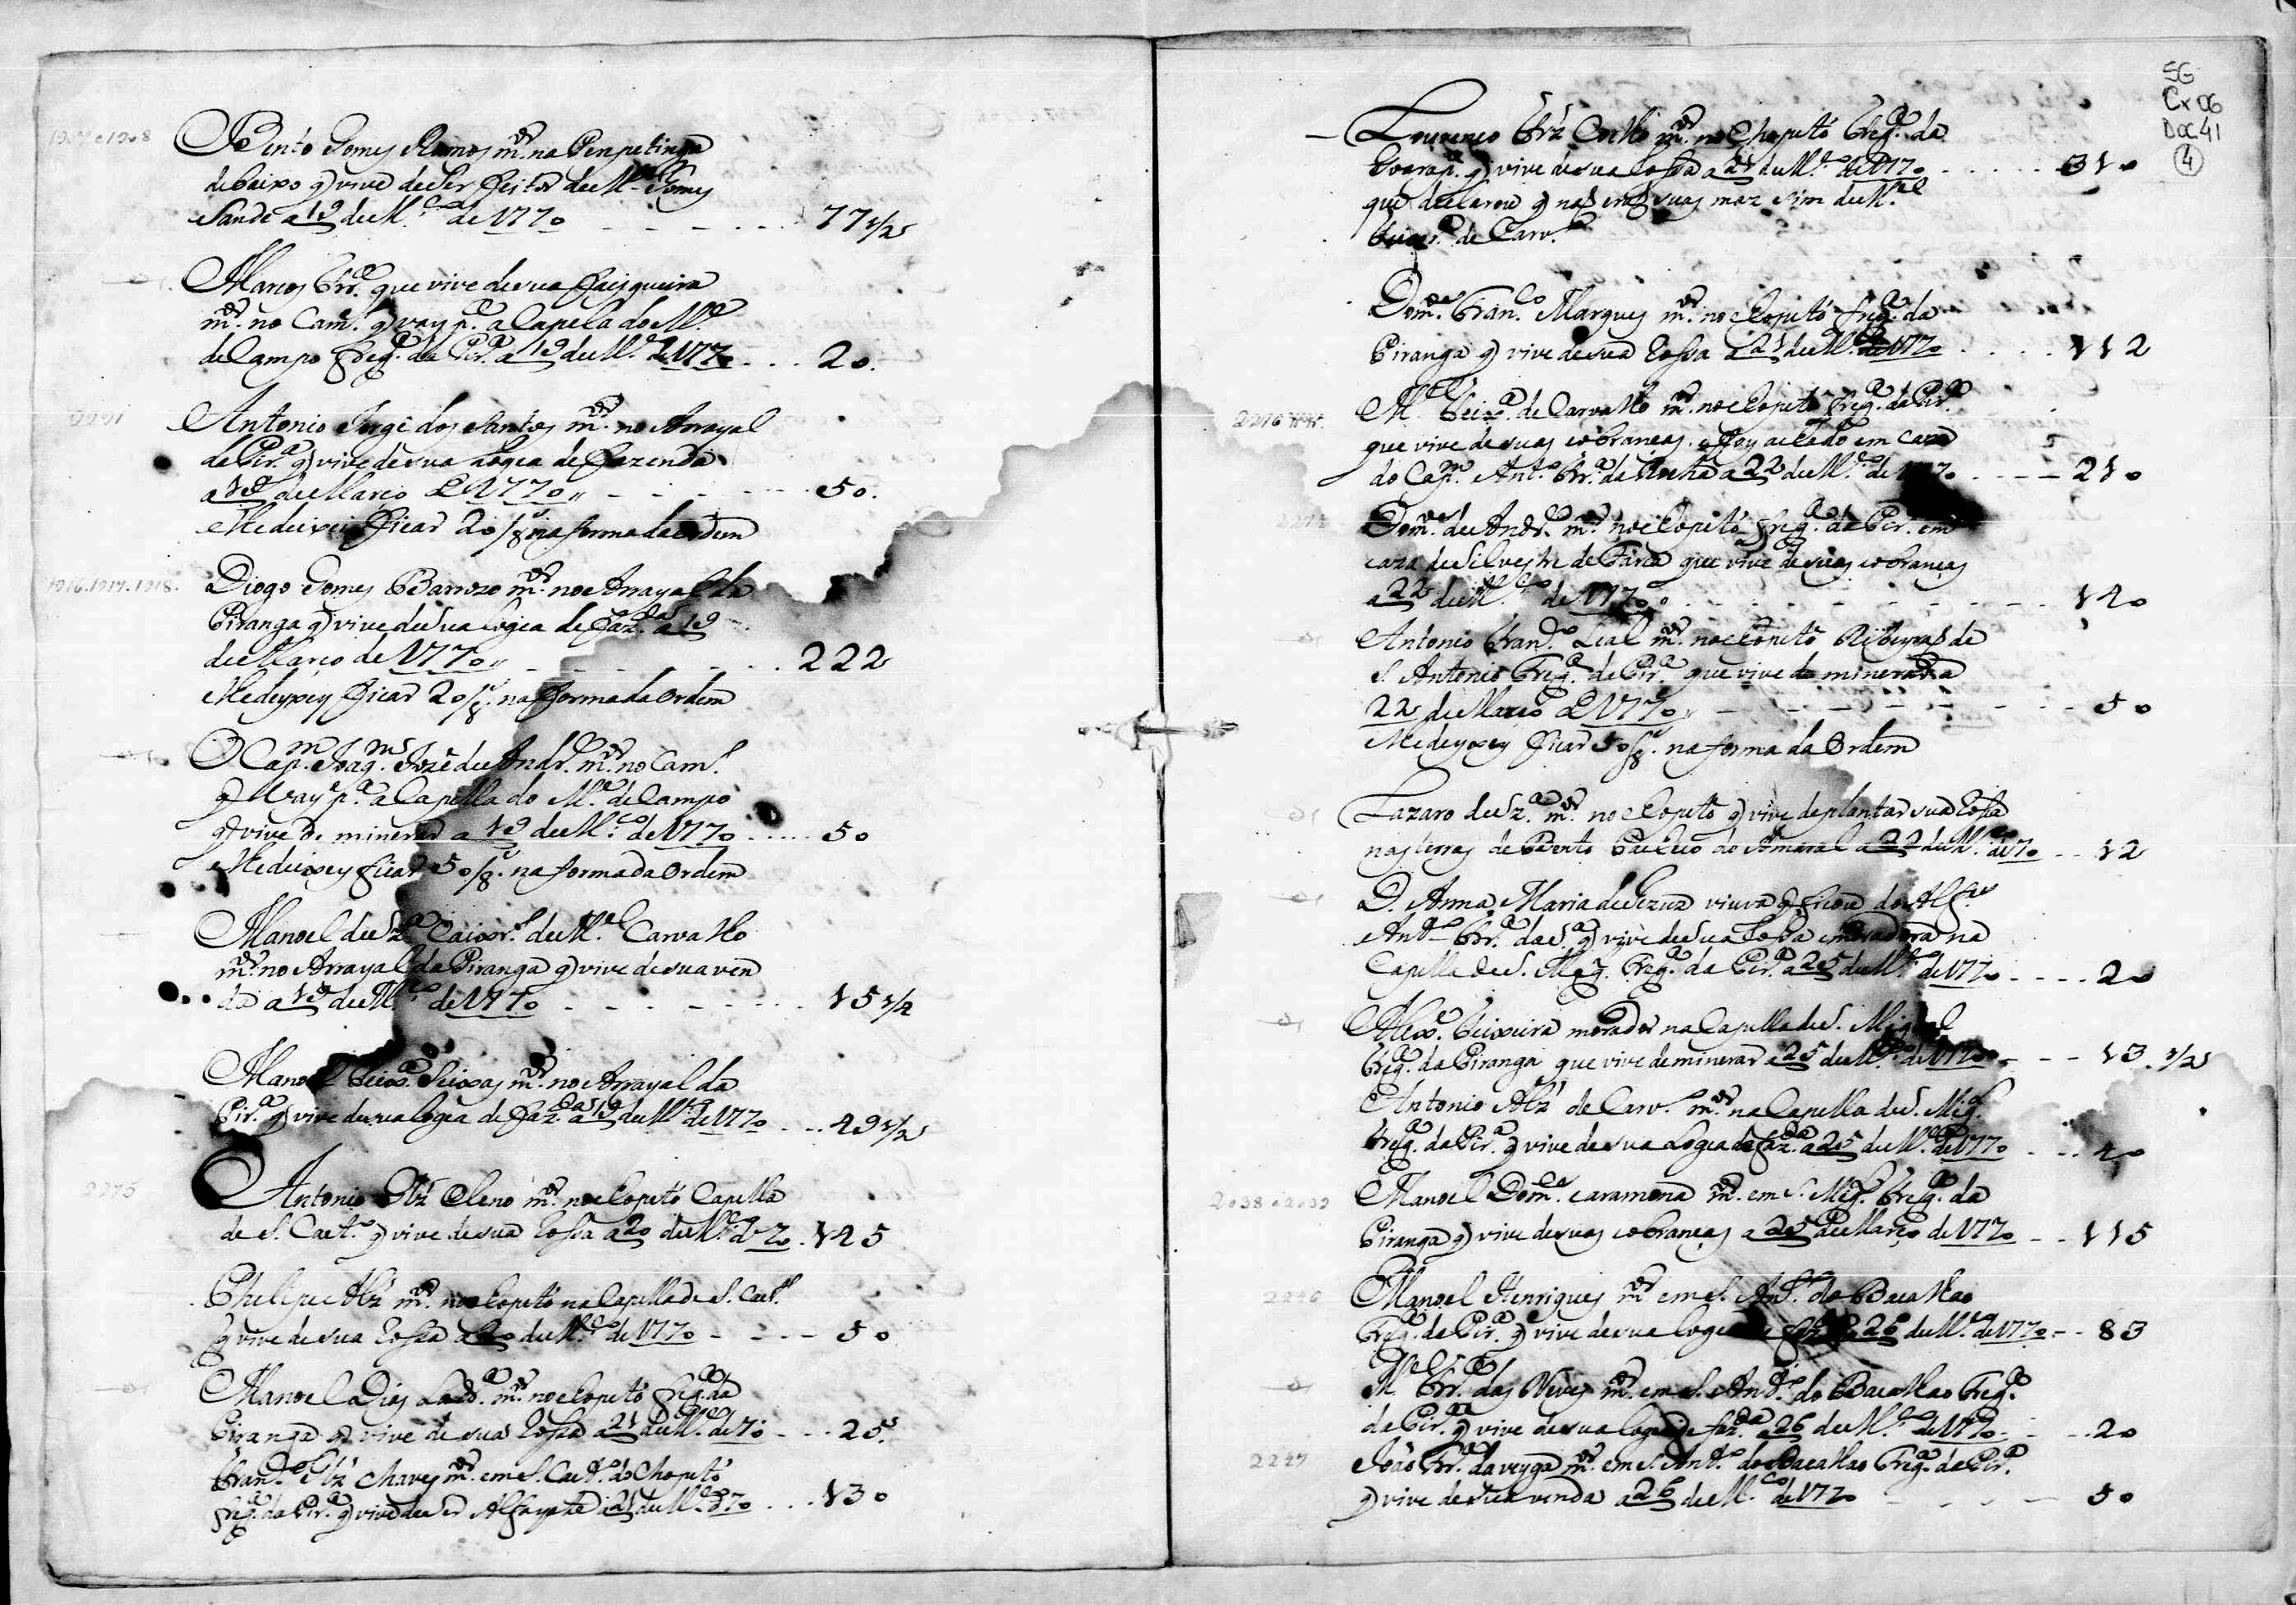 1907 e 1908
Bento Gomes Ramos m.or na Penpetinga
de baixo q vive de ser feitor de M.el Gomes
Sande a 19 de M.ço de 1770 - - - - . . 77 1/2
Marcos Prr.a que vive de sua faisqueira
m.or no Cam.o q vay p.a a Capela do M.e
de Campo freg.a da Pir.a a 19 de M.ço de 1770 . . . 20.
2291
Antonio Jorge dos Santos m.or no Arrayal
da Pir.a q vive de sua Logea de fazenda
a 19 de Março de 1770 " - - - - - . . 50.
e lhe deixei ficar 20/8.as na forma da ordem
1916.1917.1918.
Diogo Gomes Barrozo m.or no Arrayal da
Piranga q vive de sua logea de faz.das a 19
de Março de 1770 " - - - - - - . . 222
e lhe deyxey ficar 20/8.as na forma da Ordem
O Cap.m Joaq.m José de Andr.e m.or no Cam.o
q vay p.a a Capella do M.e de Campo
q vive de minerar a 19 de M.ço de 1770 . . . . . 50
e lhe deixey ficar 50/8.as na forma da Ordem
Manoel de Sz.a Caixr.o de M.el Carvalho
m.or no Arrayal da Piranga q vive de sua ven
da a 19 de M.ço de 1770 - - - - - - - . . 15 1/4
Manoel Teix.a Seixas m.or no Arrayal da
Pir.a q vive de sua logea de faz.das a 19 de M.ço de 1770 . . . 49 1/2
2275
Antonio Glz' Cleno m.or no Xopotó Capella
de S. Caet.o q vive de sua Rossa a 20 de M.ço de 70 . 145
Phelipe Alz' m.or no Xopotó na Capella de S. Caet.o
q vive de sua Rossa a 20 de M.ço de 1770 - - - - 50
Manoel Dias Lad.a m.or no Xopotó freg.a da
Piranga q vive de sua Rossa a 21 de M.ço de 70 - . . . 25.
Fran.co Glz' Chaves m.or em S. Caet.o do Chopotó
freg.a da Pir.a q vive de ser Alfayate a 21 de M.ço de 70 . . . 130
SG
Cx 06
Doc 41
4
Lourenço Frz' Coelho m.or no Chopotó Freg.a da
Goarap.a q vive de sua Rossa a 21 de M.ço de 1770 . . . . . . 310
que declarou q naó eraó suas maz sim de M.el
de Carv.o
Dom.os Fran.co Marques m.or no Xopotó freg.a da
Piranga q vive de sua Rossa a 21 de M.ço de 1770 . . . . 112
2276
M.el Teix.a de Carvalho m.or no Xopotó Freg.a da Pir.a
que vive de suas cobranças. e foy achado em caza
do Cap.m Ant.o Fr.a da Rocha a 22 de M.ço de 1770 . . - - - 210
Dom.os de Andr.e m.or no Xopotó freg.a da Pir.a em
caza de Silvestre de Faria que vive de suas cobranças
a 22 de M.ço de 1770 . . - - - - - - - - 140
Antonio Fran.co Leal m.or no Xopotó Ribeyraó de
S. Antonio Freg.a da Pir.a que vive de minerar a
22 de Março de 1770 " - - - - - - - 50
e lhe deyxey ficar 50/8.as na forma da Ordem
Lazaro de Sz.a m.or no Xopotó q vive de plantar sua Rossa
nas terras de Bento Pacheco do Amaral a 22 de M.ço de 70 - - 12
D. Anna Maria de Jezus viuva q ficou do Alf.es
Ant.o Prr.a da S.a q vive de sua Rossa e moradora na
Capella de S. Mig.l Freg.a da Pir.a a 25 de M.ço de 1770 - . . . 20
Alex.e Teixeira morador na Capella de S. Miguel
Freg.a da Piranga que vive de minerar a 25 de M.ço de 1770 - - - 13. 1/2
Antonio Alz' de Carv.o m.or na Capella de S. Mig.l
Freg.a da Pir.a q vive de sua Logea de faz.da a 25 de M.ço de 1770 . . . 40
2038 e 2039
Manoel Dom.es caramona m.or em S. Mig.l Freg.a da
Piranga q vive de suas cobranças a 25 de Março de 1770 - - 115
2246
Manoel Henriques m.or em S. Ant.o do Bacalhao
Freg.a da Pir.a q vive de sua logea de faz.da a 26 de M.ço de 1770 - - 83
M.el Prr.a das Neves m.or em S. Ant.o do Bacalhao Freg.a
da Pir.a q vive de sua logea de faz.da a 26 de M.ço de 1770 - . . 20
2247
João Prr.a da veyga m.or em S. Ant.o do Bacalhao Freg.a da Pir.a
q vive de sua venda a 26 de M.ço de 1770 - - - - 50